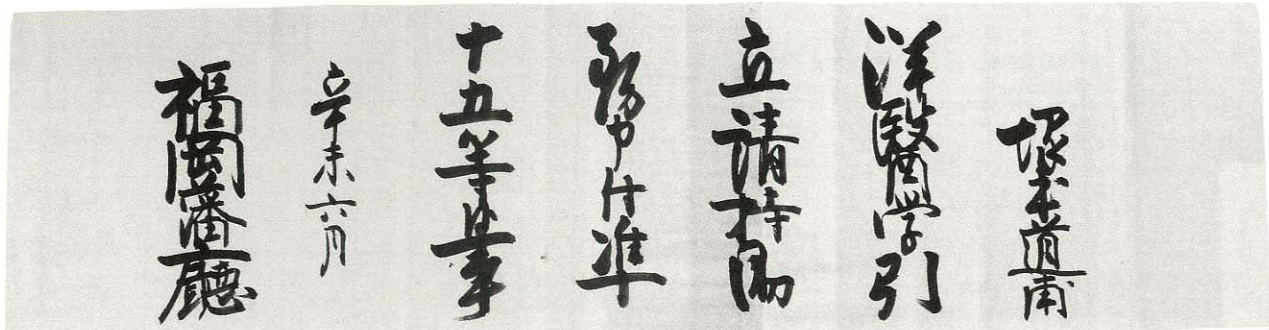 塚本道甫
洋醫学引
立請持
務申付准
十五等事
辛未六月
福岡藩廳